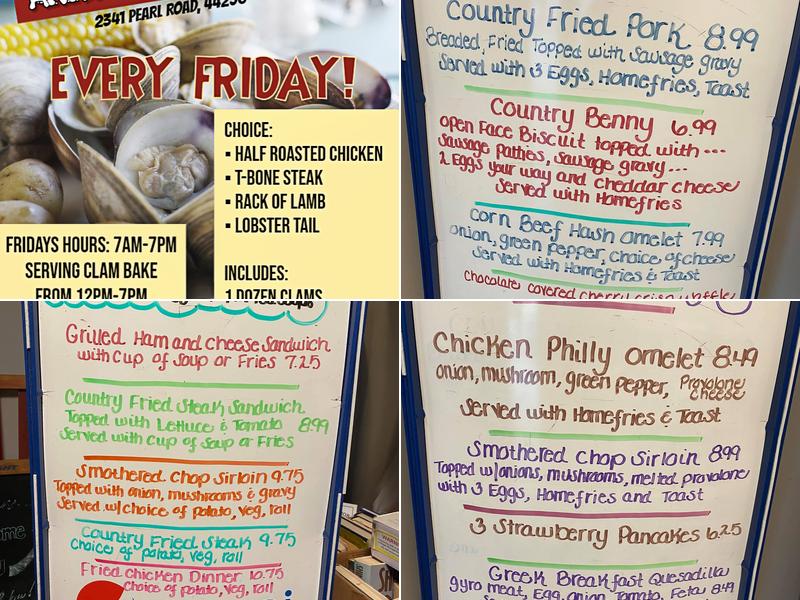 2341 PEARL ROAD, 44256
EVERY FRIDAY!
CHOICE:
▪ HALF ROASTED CHICKEN
▪ T-BONE STEAK
▪ RACK OF LAMB
▪ LOBSTER TAIL
INCLUDES:
1 DOZEN CLAMS
FRIDAYS HOURS: 7AM-7PM
SERVING CLAM BAKE
FROM 12PM-7PM
Country Fried Pork 8.99
Breaded, Fried Topped with Sausage gravy
Served with 3 Eggs, Homefries, Toast
Country Benny 6.99
Open Face Biscuit topped with ...
Sausage patties, Sausage gravy ...
2 Eggs your way and cheddar cheese
Served with Homefries
Corn Beef Hash Omelet 7.99
onion, green pepper, choice of cheese
Served with Homefries & Toast
chocolate covered cherry crisp waffle
Grilled Ham and cheese Sandwich
with Cup of Soup or Fries 7.25
Country Fried Steak Sandwich
Topped with Lettuce & Tomato 8.99
Served with Cup of Soup or Fries
Smothered Chop Sirloin 9.75
Topped with onion, mushrooms & gravy
Served w/choice of potato, veg, roll
Country Fried Steak 9.75
Choice of potato, veg, roll
Fried Chicken Dinner 10.75
Choice of potato, veg, roll
Chicken Philly Omelet 8.49
onion, mushroom, green pepper, Provolone
cheese
Served with Homefries & Toast
Smothered Chop Sirloin 8.99
Topped w/onions, mushrooms, melted provalone
with 3 Eggs, Homefries and Toast
3 Strawberry Pancakes 6.25
Greek Breakfast Quesadilla
gyro meat, Egg, onion, Tomato, Feta 8.49